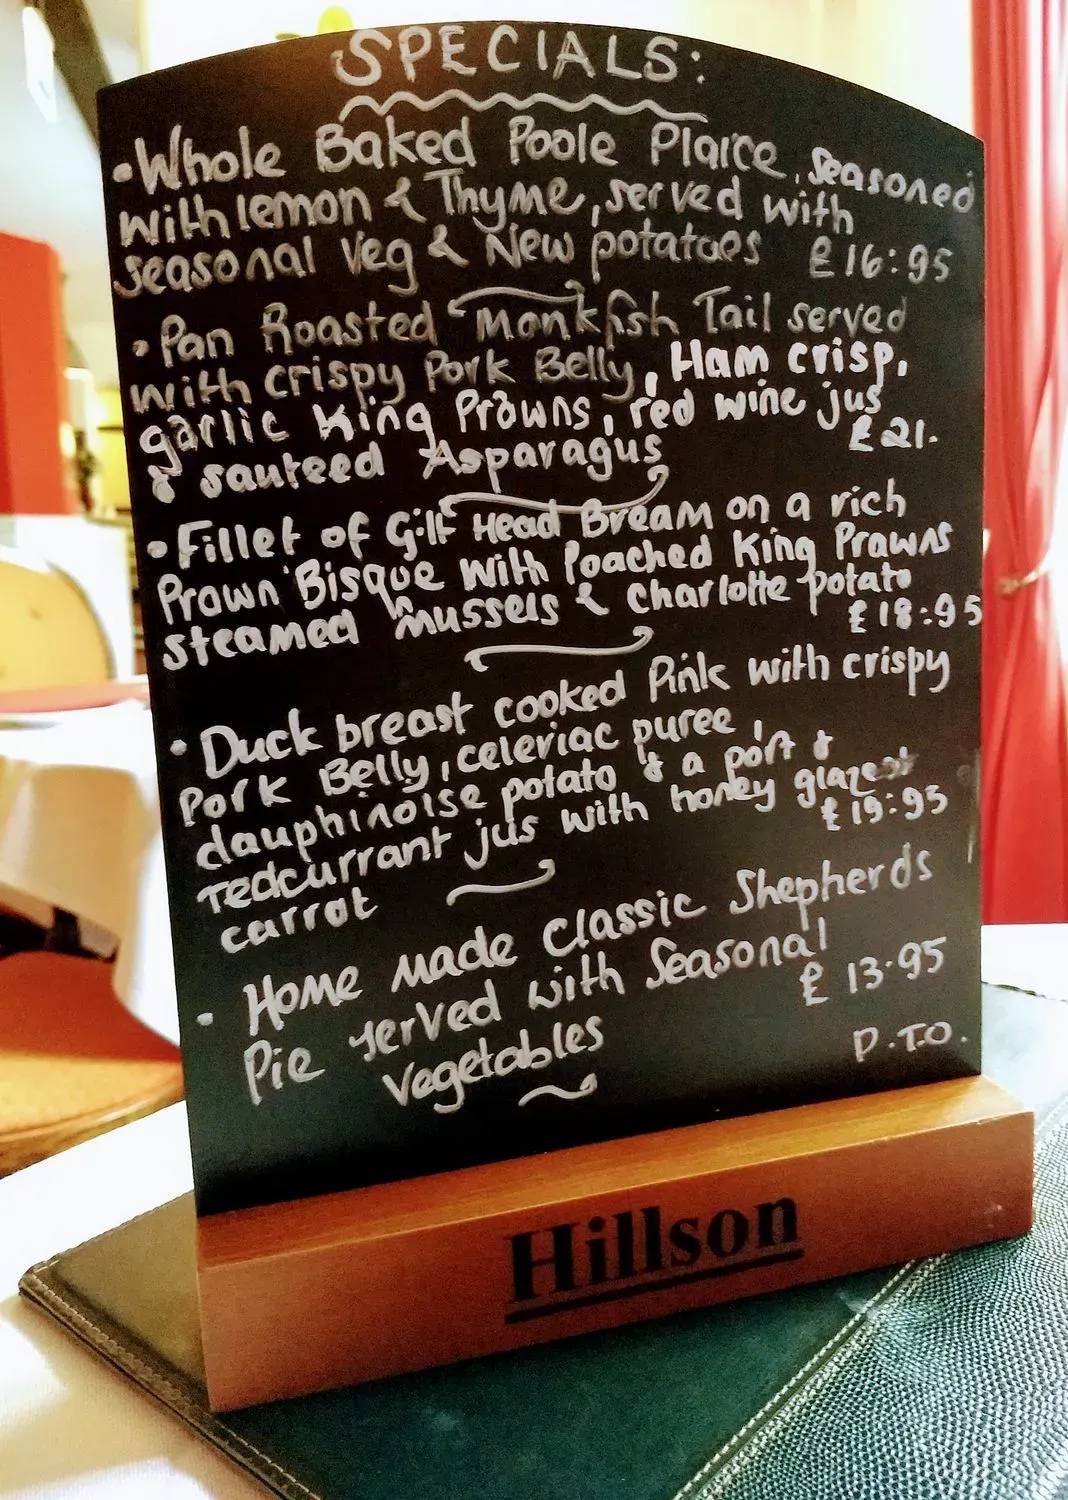 SPECIALS:
• Whole Baked Poole Plaice, seasoned
with lemon & Thyme, served with
seasonal Veg & New potatoes £16:95
• Pan Roasted Monkfish Tail served
with crispy Pork Belly, Ham crisp,
garlic King Prawns, red wine jus
& sauteed Asparagus £21.
• Fillet of Gilt Head Bream on a rich
Prawn Bisque with Poached King Prawns
steamed mussels & Charlotte potato
£18:95
• Duck breast cooked Pink with crispy
Pork Belly, celeriac puree,
dauphinoise potato & a port &
redcurrant jus with honey glazed
carrot £19:95
• Home made Classic Shepherds
Pie served with Seasonal
Vegetables £13.95
P.T.O.
Hillson